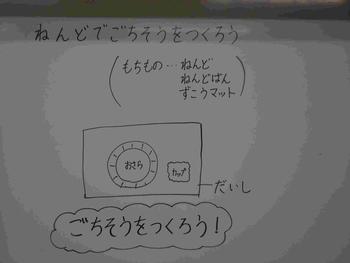 ねんどでごちそうをつくろう
(もちもの…ねんど
ねんどばん
ずこうマット)
おさら
カップ
だいし
ごちそうをつくろう!